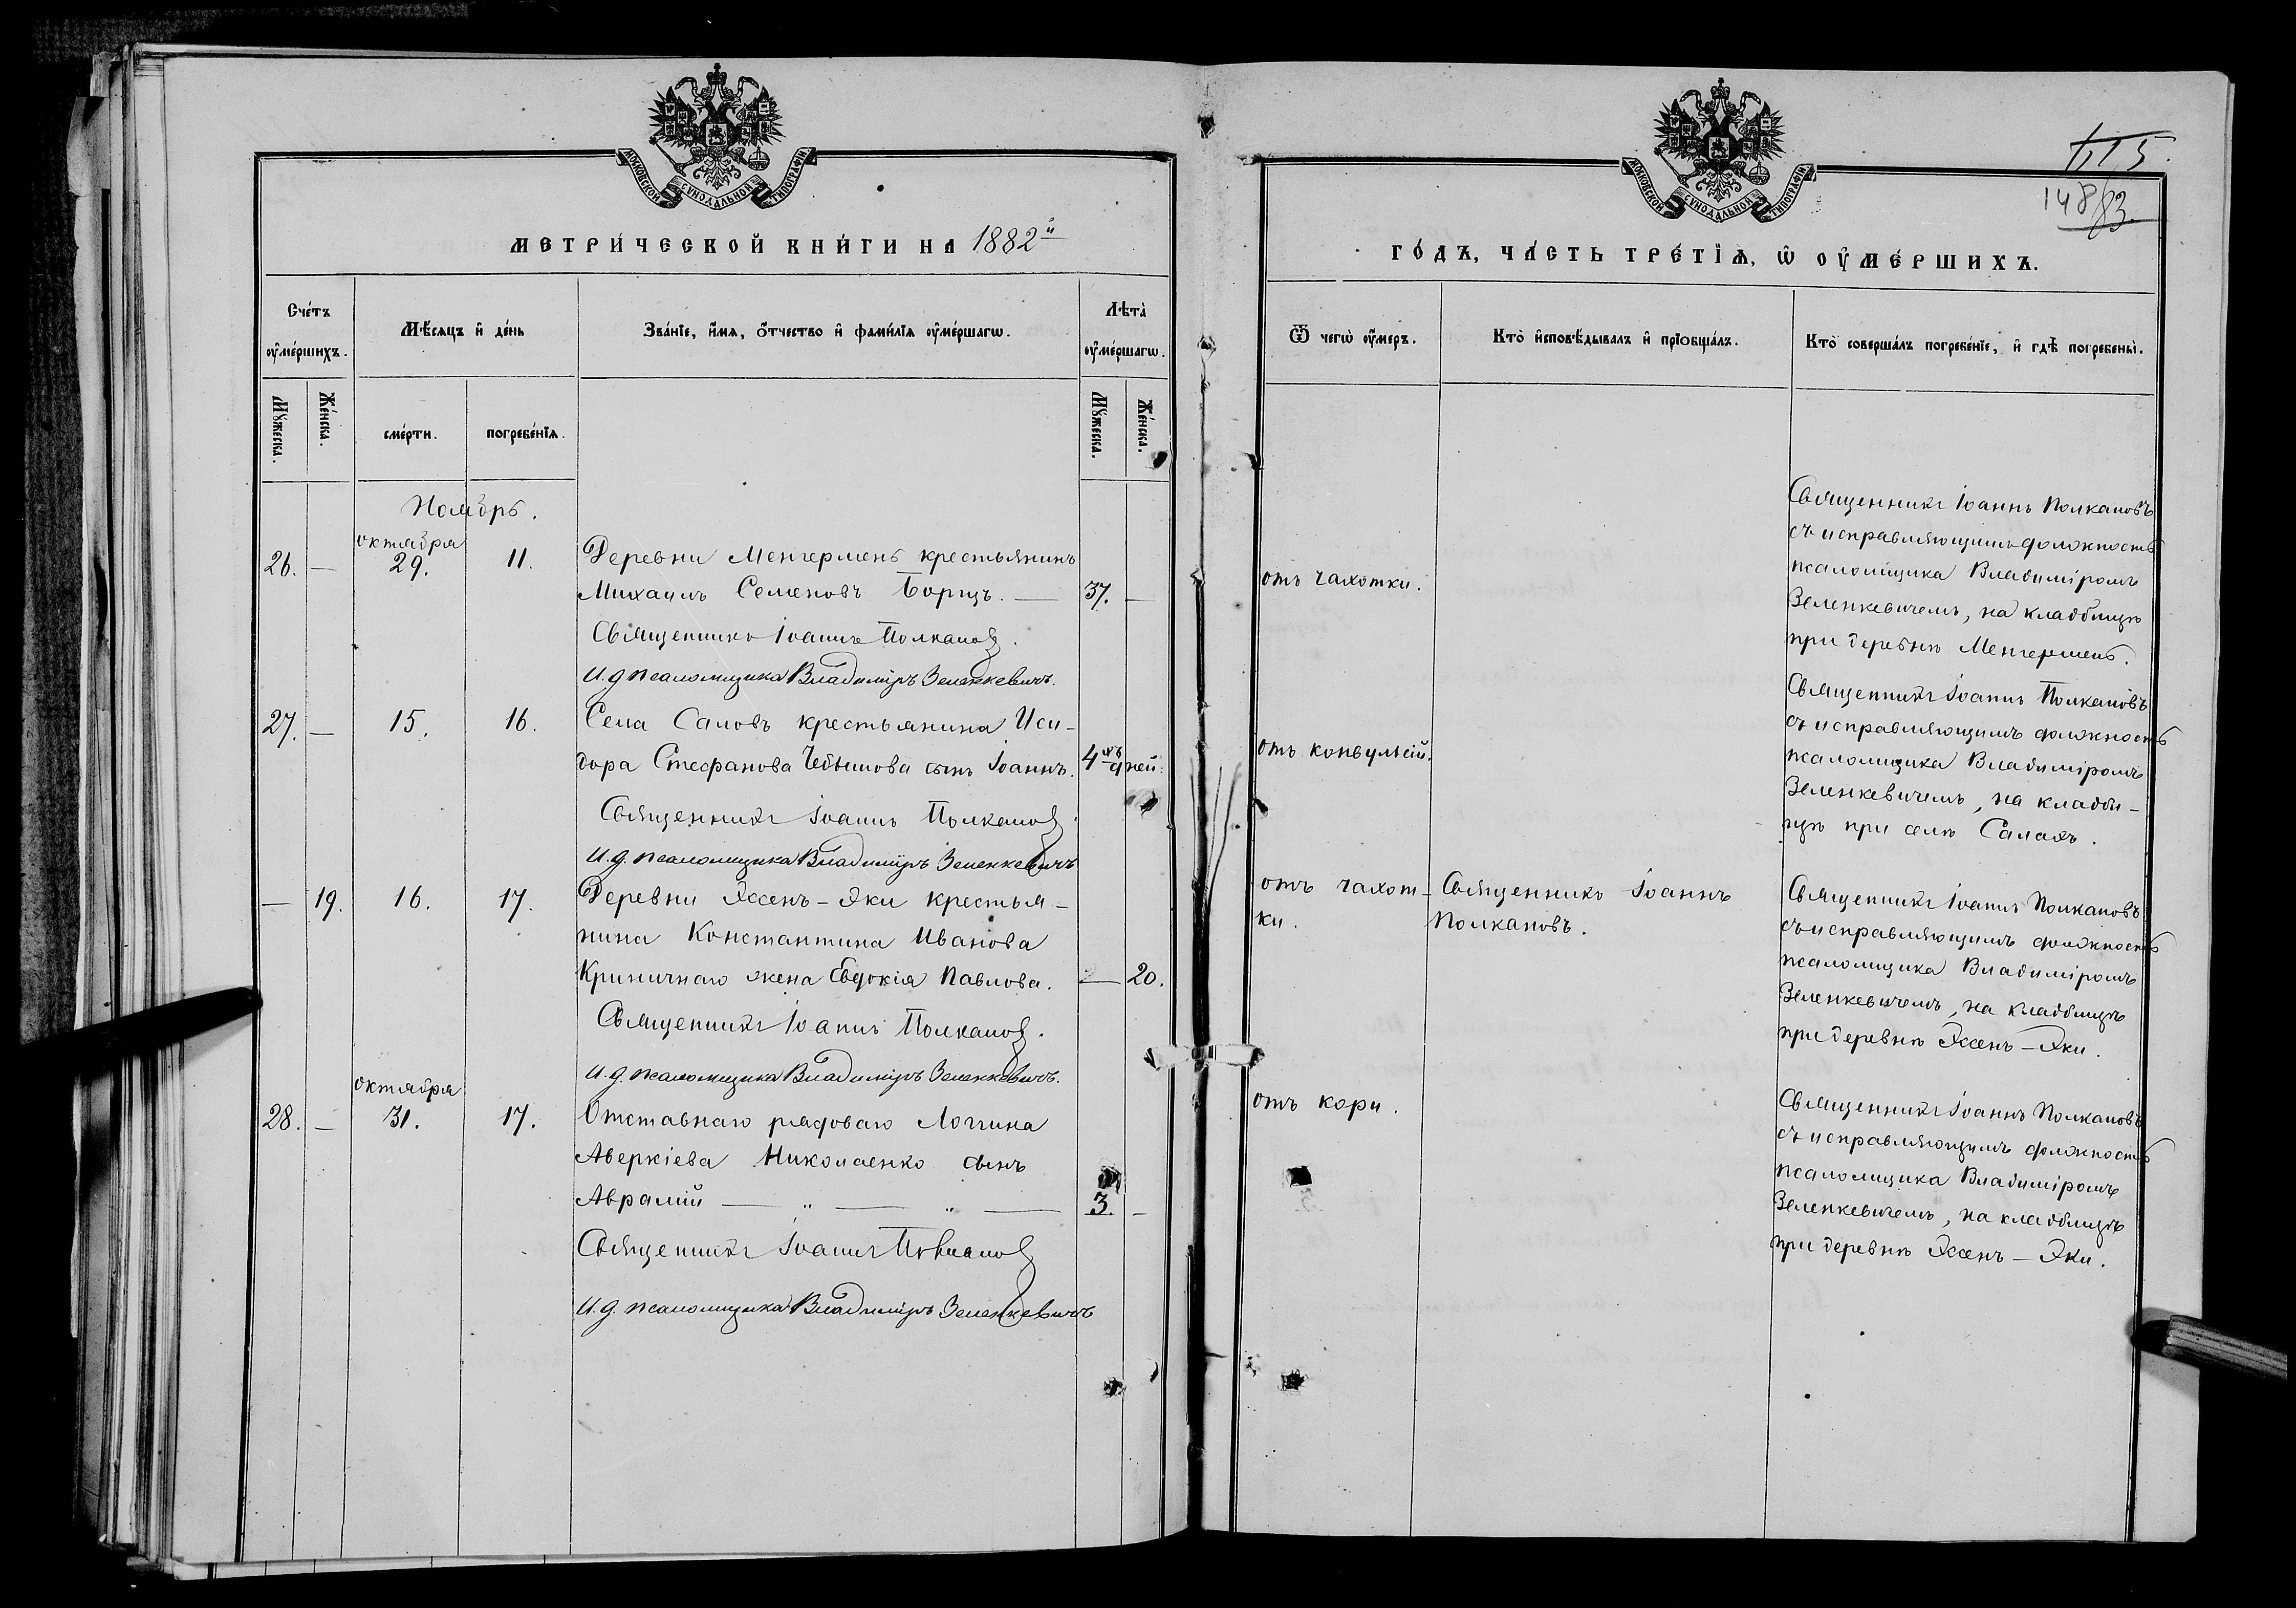 МОСКОВСКОЙ СУНОДАЛЬНОЙ ТИПОГРАФІИ
МЕТРИ́ЧЕСКОЙ КНИ́ГИ НА 1882й
Сче́тъ оу҆ме́ршихъ.
Мѣ́сяцъ и҆ де́нь
Зва́нїе, и҆́мя, ѻ҆́тчество и҆ фами́лїя оу҆ме́ршагѡ.
Лѣта̀ оу҆ме́ршагѡ.
Мꙋ́жеска.
Же́нска.
сме́рти.
погребе́нїѧ.
Мꙋ́жеска.
Же́нска.
Ноябрь.
октября
26. — 29. 11. Деревни Менгермень крестьянинъ
Михаилъ Семеновъ Борщъ. — 37. —
Священникъ Іоаннъ Полкановъ.
И. д. псаломщика Владиміръ Зеленкевичъ.
27. — 15. 16. Села Саловъ крестьянина Иси-
дора Стефанова Чебышова сынъ Іоаннъ. 4хъ дней.
Священникъ Іоаннъ Полкановъ.
И. д. псаломщика Владиміръ Зеленкевичъ
— 19. 16. 17. Деревни Эссенъ-Эки крестья-
нина Константина Иванова
Криничнаго жена Евдокія Павлова. — 20.
Священникъ Іоаннъ Полкановъ.
И. д. псаломщика Владиміръ Зеленкевичъ.
октября
28. — 31. 17. Отставнаго рядоваго Логгина
Аверкіева Николаенко сынъ
Аврамій — „ — „ — 3. —
Священникъ Іоаннъ Полкановъ
И. д. псаломщика Владиміръ Зеленкевичъ
МОСКОВСКОЙ СУНОДАЛЬНОЙ ТИПОГРАФІИ
115.
148/83
ГО́ДЪ, ЧА́СТЬ ТРЕ́ТЇѦ, Ѡ҆ ОУ҆МЕ́РШИХЪ.
Ѿ чегѡ̀ оу҆́меръ.
Кто̀ и҆сповѣ́дывалъ и҆ прїобща́лъ.
Кто̀ соверша́лъ погребе́нїе, и҆ гдѣ̀ погребены̀.
отъ чахотки.
Священникъ Іоаннъ Полкановъ
съ исправляющимъ должность
псаломщика Владиміромъ
Зеленкевичемъ, на кладбищѣ
при деревнѣ Менгермень.
отъ конвульсій.
Священникъ Іоаннъ Полкановъ
съ исправляющимъ должность
псаломщика Владиміромъ
Зеленкевичемъ, на кладби-
щѣ при селѣ Салахъ.
отъ чахот-
ки.
Священникъ Іоаннъ
Полкановъ.
Священникъ Іоаннъ Полкановъ
съ исправляющимъ должность
псаломщика Владиміромъ
Зеленкевичемъ, на кладбищѣ
при деревнѣ Эссенъ-Эки.
отъ кори.
Священникъ Іоаннъ Полкановъ
съ исправляющимъ должность
псаломщика Владиміромъ
Зеленкевичемъ, на кладбищѣ
при деревнѣ Эссенъ-Эки.